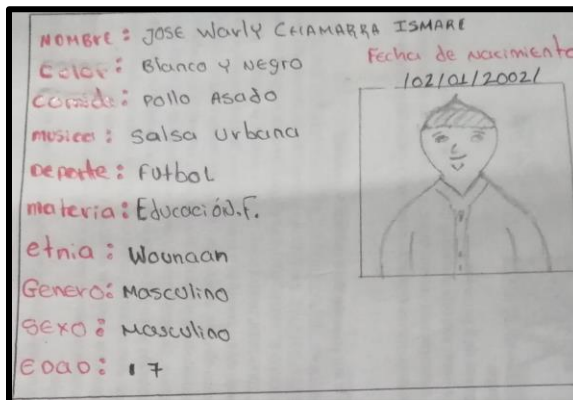 NOMBRE: JOSE Warly CHAMARRA ISMARE
Fecha de Nacimiento
/02/01/2002/
Color: Blanco y Negro
Comida: Pollo Asado
musica: Salsa Urbana
Deporte: Futbol
materia: Educación.F.
etnia: Wounaan
Genero: Masculino
Sexo: Masculino
EDAD: 17